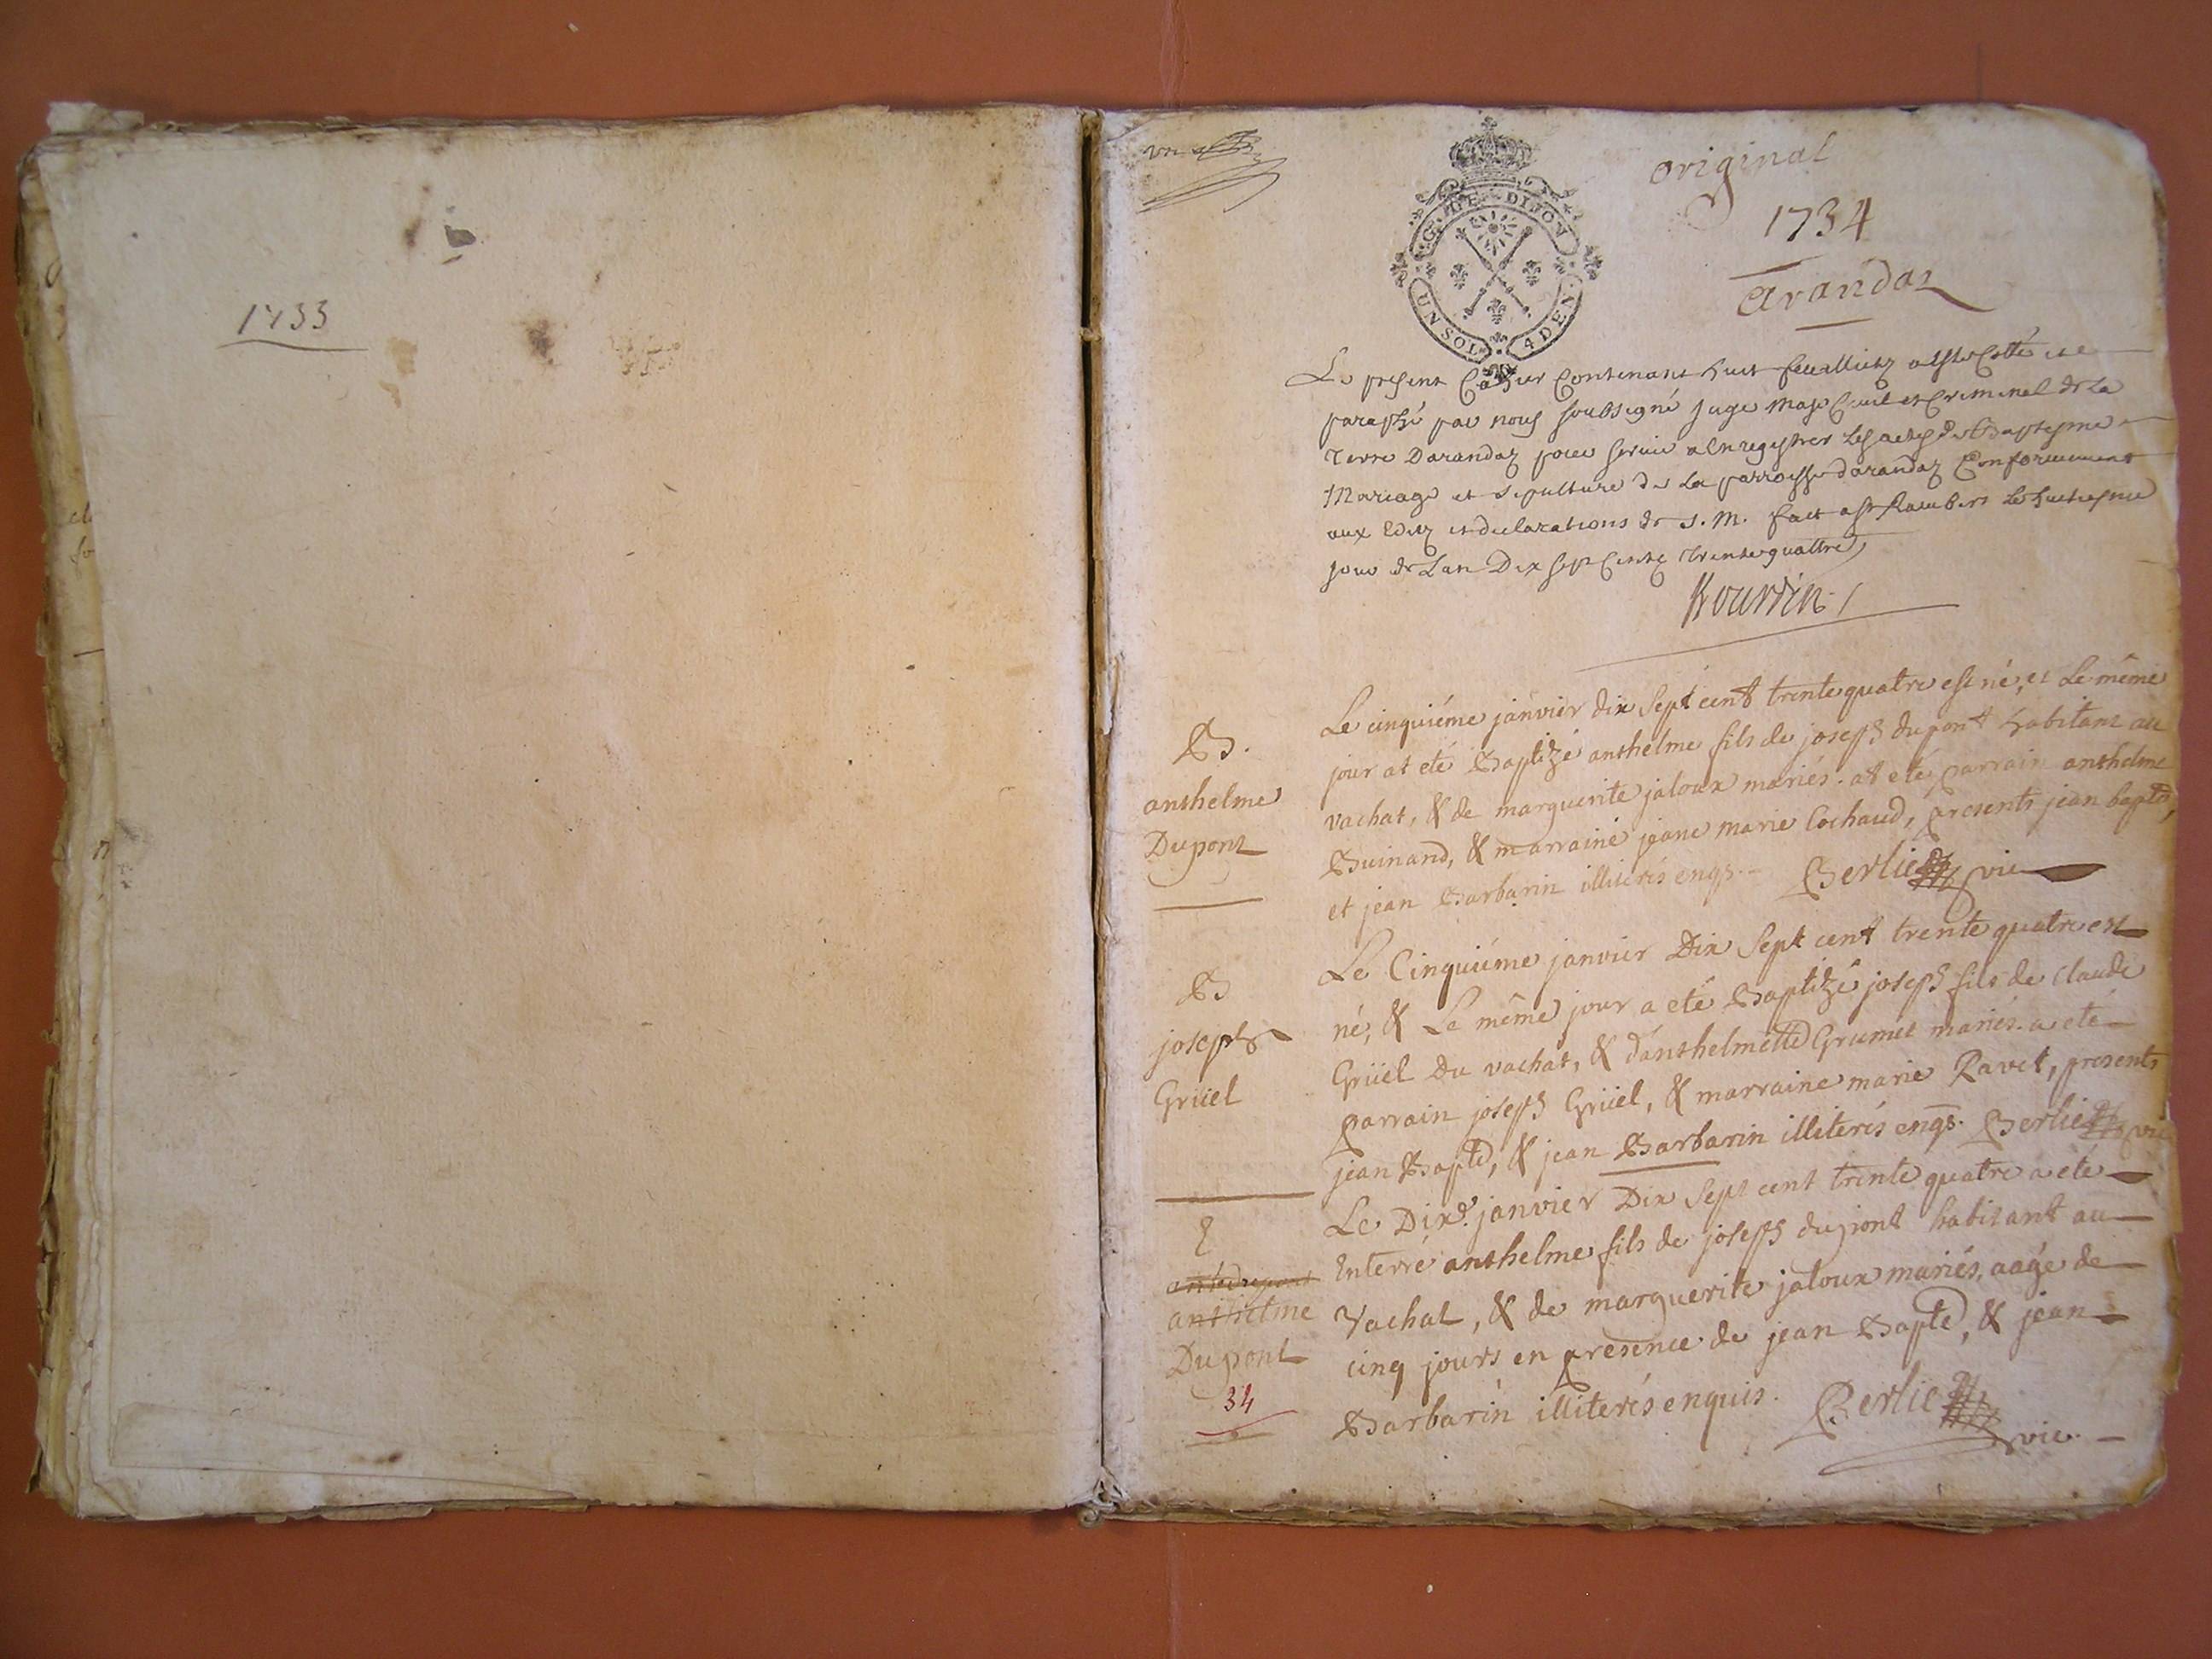 1733
un
G. DE DIJON
UN SOL 4 DEN.
original
1734
Arandaz
Le present Cahier Contenant huit feuillietz a esté Cotté et
paraphé par nous soubsigné Juge Maje Civil et Criminel de La
Terre Darandaz pour servir a Enregistrer Les actes de Baptesme
Mariage et sepulture de La parroisse darandaz Conformement
aux Editz et declarations de s. M. fait a st Rambert Le huitiesme
jour de Lan Dix sept Centz Trente quattre
B.
anthelme
Dupont
Le cinquiéme janvier dix Sept cent trente quatre est né, et Le même
jour at eté Baptizé anthelme fils de joseph dupont habitant au
vachat, & de marguerite jaloux mariés. at eté parrain anthelme
Buinand, & marraine jeane marie Cochaud, presents jean bapte,
et jean Barbarin illiterés enqs. Berlie vic
B
joseph
Grüel
Le Cinquiéme janvier Dix Sept cent trente quatre est
né, & Le même jour a eté Baptizé joseph fils de claude
Grüel Du vachat, & d'anthelmette Grumet mariés. a eté
parrain joseph Grüel, & marraine marie Ravet, presents
jean Bapte, & jean Barbarin illiterés enqs. Berlie vic
E
anthelme
Dupont
34
Le Dixe. janvier Dix Sept cent trente quatre a eté
Enterré anthelme fils de joseph dupont habitant au
Vachat, & de marguerite jaloux mariés, aagé de
cinq jours en presence de jean Bapte, & jean
Barbarin illiterés enquis. Berlie
vic.